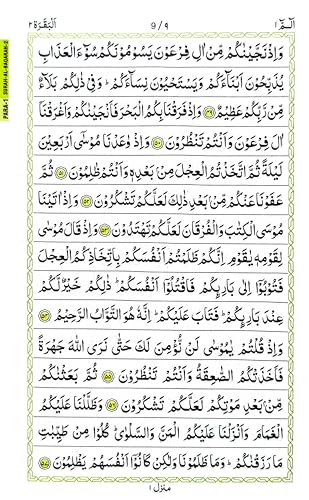 الٓمّٓ ١
9/۹
اَلْبَقَرَة ٢
PARA-1 SURAH-AL-BAQARAH-2
وَاِذْ نَجَّيْنٰكُمْ مِّنْ اٰلِ فِرْعَوْنَ يَسُوْمُوْنَكُمْ سُوْٓءَ الْعَذَابِ
يُذَبِّحُوْنَ اَبْنَآءَكُمْ وَيَسْتَحْيُوْنَ نِسَآءَكُمْ ؕ وَفِيْ ذٰلِكُمْ بَلَآءٌ
مِّنْ رَّبِّكُمْ عَظِيْمٌ ﴿٤٩﴾ وَاِذْ فَرَقْنَا بِكُمُ الْبَحْرَ فَاَنْجَيْنٰكُمْ وَاَغْرَقْنَآ
اٰلَ فِرْعَوْنَ وَاَنْتُمْ تَنْظُرُوْنَ ﴿٥٠﴾ وَاِذْ وٰعَدْنَا مُوْسٰٓى اَرْبَعِيْنَ
لَيْلَةً ثُمَّ اتَّخَذْتُمُ الْعِجْلَ مِنْۢ بَعْدِهٖ وَاَنْتُمْ ظٰلِمُوْنَ ﴿٥١﴾ ثُمَّ
عَفَوْنَا عَنْكُمْ مِّنْۢ بَعْدِ ذٰلِكَ لَعَلَّكُمْ تَشْكُرُوْنَ ﴿٥٢﴾ وَاِذْ اٰتَيْنَا
مُوْسَى الْكِتٰبَ وَالْفُرْقَانَ لَعَلَّكُمْ تَهْتَدُوْنَ ﴿٥٣﴾ وَاِذْ قَالَ مُوْسٰى
لِقَوْمِهٖ يٰقَوْمِ اِنَّكُمْ ظَلَمْتُمْ اَنْفُسَكُمْ بِاتِّخَاذِكُمُ الْعِجْلَ
فَتُوْبُوْٓا اِلٰى بَارِىِٕكُمْ فَاقْتُلُوْٓا اَنْفُسَكُمْ ؕ ذٰلِكُمْ خَيْرٌ لَّكُمْ
عِنْدَ بَارِىِٕكُمْ ؕ فَتَابَ عَلَيْكُمْ ؕ اِنَّهٗ هُوَ التَّوَّابُ الرَّحِيْمُ ﴿٥٤﴾
وَاِذْ قُلْتُمْ يٰمُوْسٰى لَنْ نُّؤْمِنَ لَكَ حَتّٰى نَرَى اللّٰهَ جَهْرَةً
فَاَخَذَتْكُمُ الصّٰعِقَةُ وَاَنْتُمْ تَنْظُرُوْنَ ﴿٥٥﴾ ثُمَّ بَعَثْنٰكُمْ
مِّنْۢ بَعْدِ مَوْتِكُمْ لَعَلَّكُمْ تَشْكُرُوْنَ ﴿٥٦﴾ وَظَلَّلْنَا عَلَيْكُمُ
الْغَمَامَ وَاَنْزَلْنَا عَلَيْكُمُ الْمَنَّ وَالسَّلْوٰى ؕ كُلُوْا مِنْ طَيِّبٰتِ
مَا رَزَقْنٰكُمْ ؕ وَمَا ظَلَمُوْنَا وَلٰكِنْ كَانُوْٓا اَنْفُسَهُمْ يَظْلِمُوْنَ ﴿٥٧﴾
منزل ١